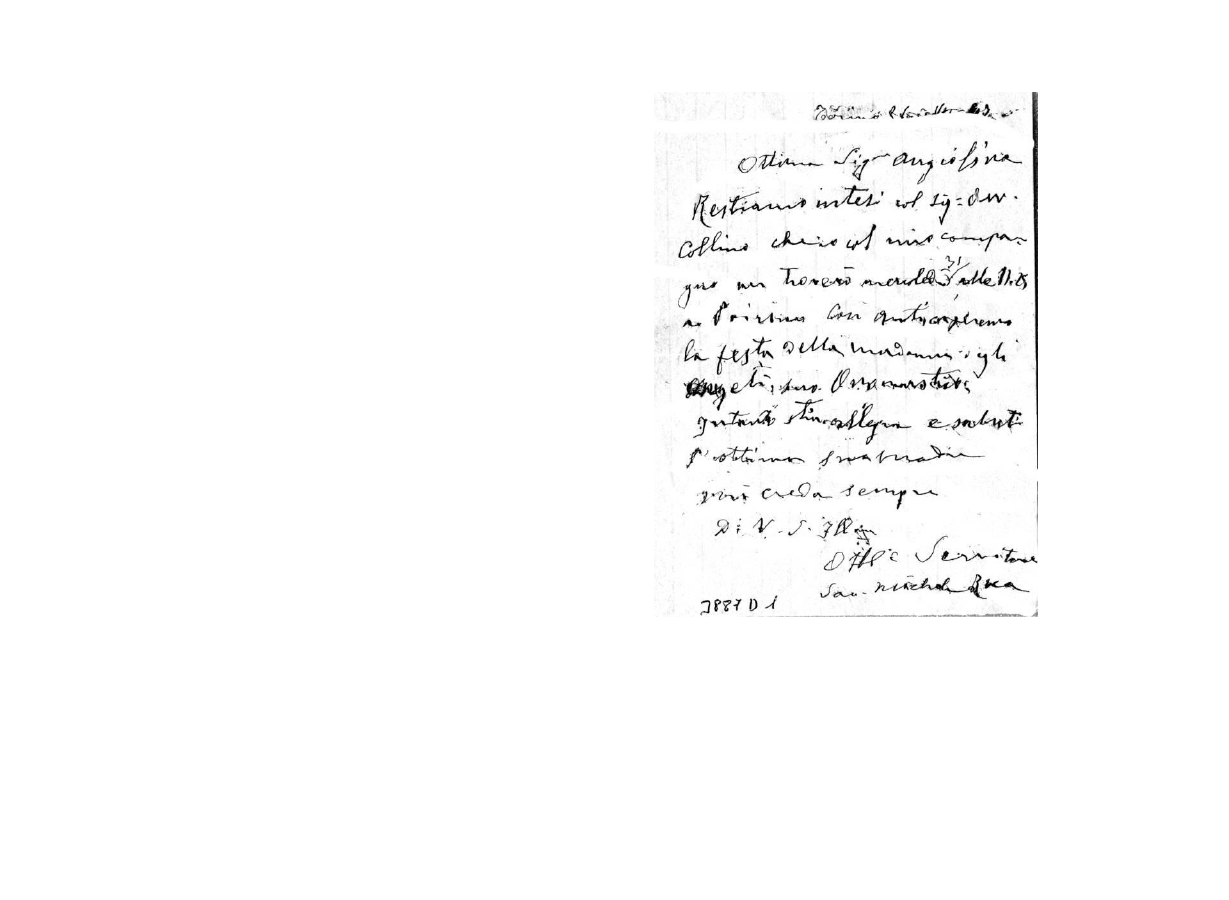 Torino
Ottima Sigra Angiolina
Restiamo intesi col Sig: Avv.
Collino che io col mio compa-
gno mi troverò mercoledì 31 alle
a Poirino Così anticiperemo
la festa della madonna degli
angeli, suo Onomastico
Intanto stia allegra e saluti
l'ottima sua madre
mi creda sempre
Di V. S. Ill
Servitore
Sac. Michele Rua
3887 D 1